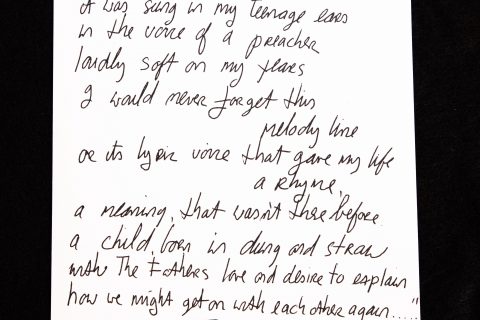 it was sung in my teenage ears
in the voice of a preacher
loudly soft on my tears
I would never forget this
melody line
or its lyric voice that gave my life
a Rhyme,
a meaning, that wasn't there before
a child, born in dung and straw
with The Fathers love and desire to explain
how we might get on with each other again....."